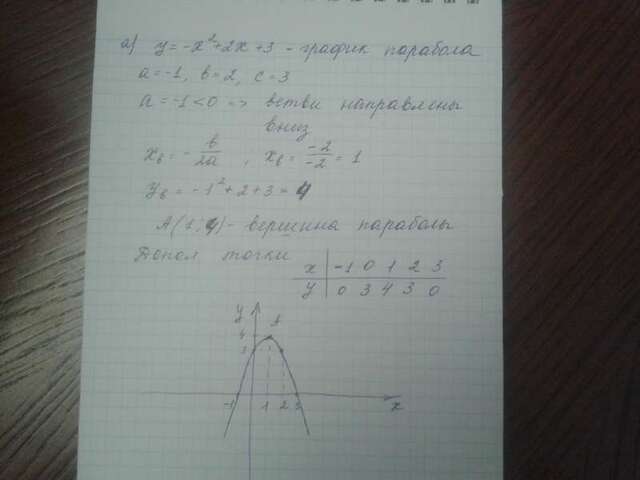 а) y = -x² + 2x + 3 - график парабола
a = -1, b = 2, c = 3
a = -1 < 0 => ветви направлены
вниз
x_в = - b/2a , x_в = -2/-2 = 1
y_в = -1² + 2 + 3 = 4
A(1; 4) - вершина параболы
Допол точки
x | -1 0 1 2 3
y | 0 3 4 3 0
y
A
4
3
-1 1 2 3 x